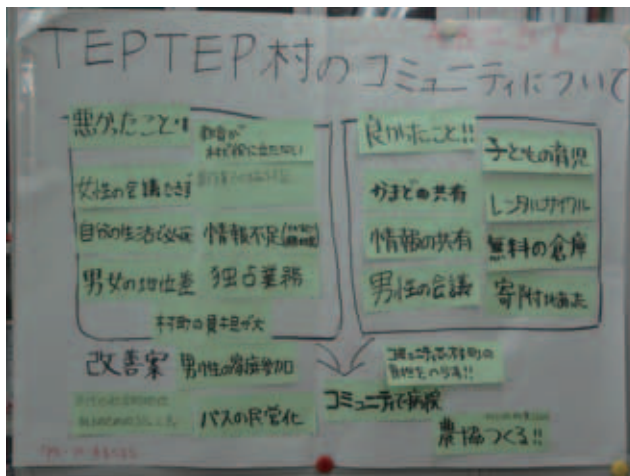 TEPTEP村のコミュニティについて
悪かったこと!!
教育が
村で役に立たない
女性の会議できず
自分の生活で必死
情報不足
男女の地位差
独占業務
村町の負担が大
良かったこと!!
子どもの育児
かまどの共有
レンタルサイクル
情報の共有
無料の倉庫
男性の会議
寄付があった
改善案
男性の家庭参加
バスの民営化
コミュニティで病院
農協つくる!!